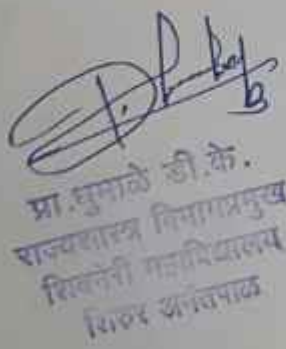 प्रा.घुमाळे डी.के.
राज्यशास्त्र विभागप्रमुख
शिवनेरी महाविद्यालय
शिरुर अनंतपाळ